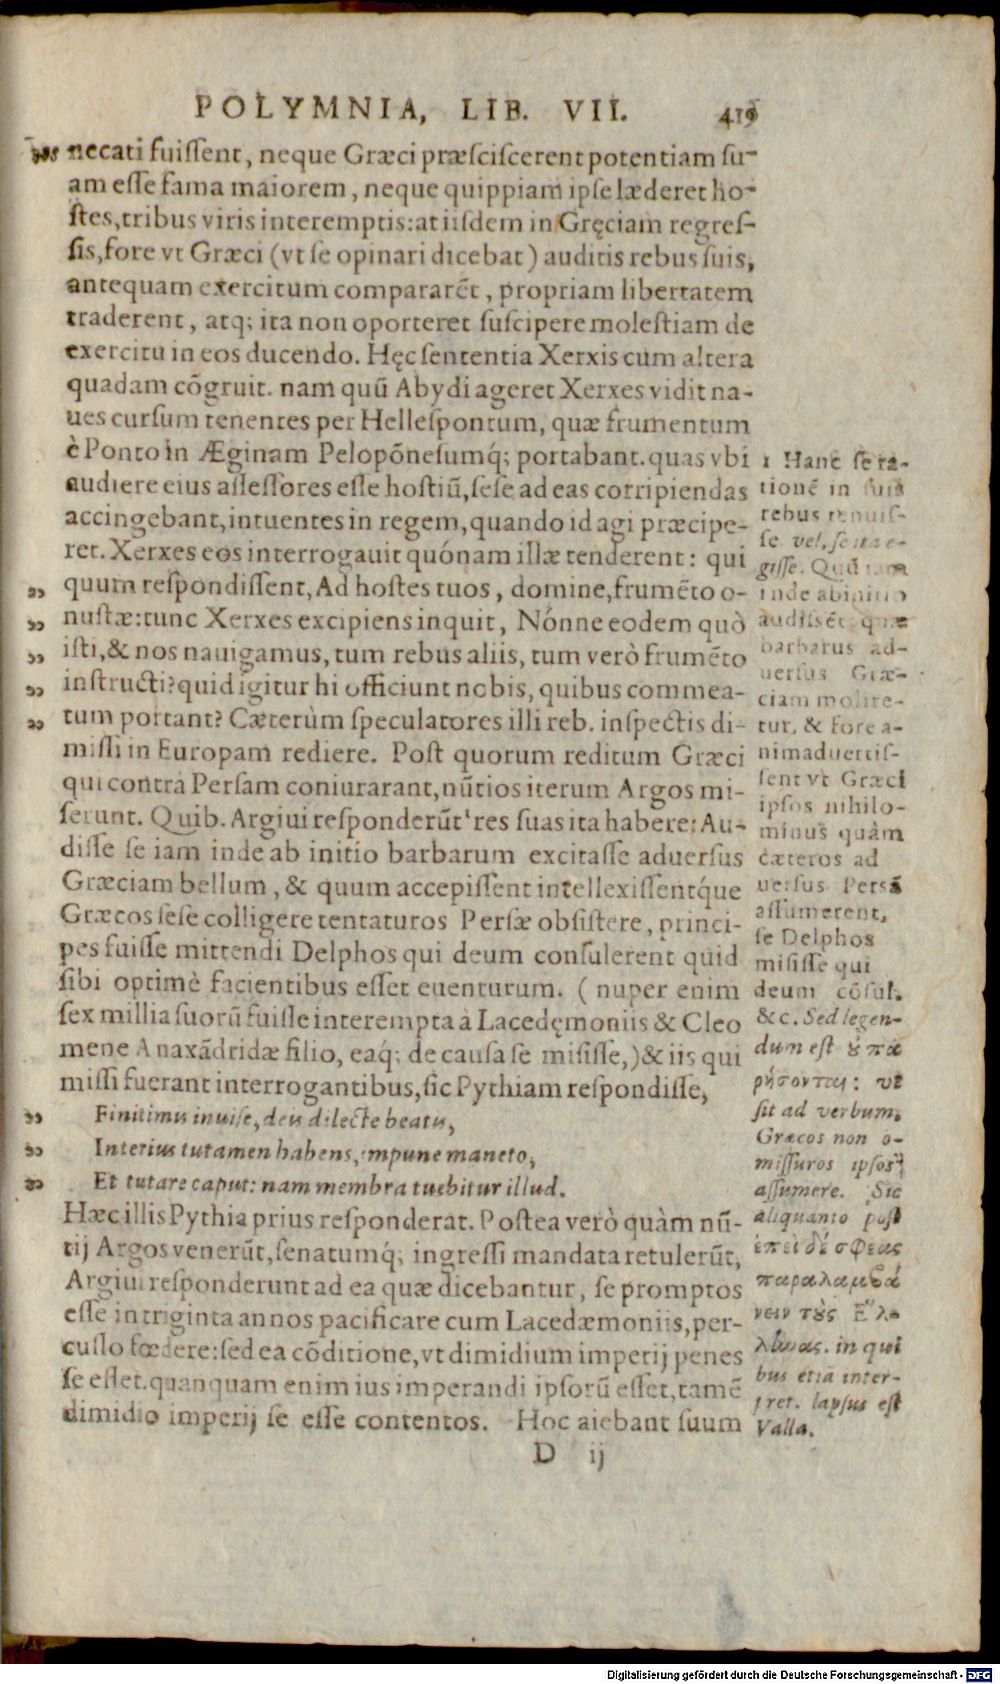 POLYMNIA, LIB. VII. 419
necati fuiſſent, neque Græci præſciſcerent potentiam ſu-
am eſſe fama maiorem, neque quippiam ipſe læderet ho-
ſtes, tribus viris interemptis: at iiſdem in Gręciam regreſ-
ſis, fore vt Græci (vt ſe opinari dicebat) auditis rebus ſuis,
antequam exercitum compararēt, propriam libertatem
traderent, atq; ita non oporteret ſuſcipere moleſtiam de
exercitu in eos ducendo. Hęc ſententia Xerxis cum altera
quadam cōgruit. nam quū Abydi ageret Xerxes vidit na-
ues curſum tenentes per Helleſpontum, quæ frumentum
è Ponto in Æginam Pelopōneſumq́; portabant. quas vbi
audiere eius aſſeſſores eſſe hoſtiū, ſeſe ad eas corripiendas
accingebant, intuentes in regem, quando id agi præcipe-
ret. Xerxes eos interrogauit quónam illæ tenderent: qui
quum reſpondiſſent, Ad hoſtes tuos, domine, frumēto o-
nuſtæ: tunc Xerxes excipiens inquit, Nónne eodem quò
iſti, & nos nauigamus, tum rebus aliis, tum verò frumēto
inſtructi? quid igitur hi officiunt nobis, quibus commea-
tum portant? Cæterùm ſpeculatores illi reb. inſpectis di-
miſſi in Europam rediere. Poſt quorum reditum Græci
qui contra Perſam coniurarant, nūtios iterum Argos mi-
ſerunt. Quib. Argiui reſponderūt ¹ res ſuas ita habere: Au-
diſſe ſe iam inde ab initio barbarum excitaſſe aduerſus
Græciam bellum, & quum accepiſſent intellexiſſentq́ue
Græcos ſeſe colligere tentaturos Perſæ obſiſtere, princi-
pes fuiſſe mittendi Delphos qui deum conſulerent quid
ſibi optimè facientibus eſſet euenturum. (nuper enim
ſex millia ſuorū fuiſſe interempta à Lacedęmoniis & Cleo
mene Anaxādridæ filio, eaq́; de cauſa ſe miſiſſe,) & iis qui
miſſi fuerant interrogantibus, ſic Pythiam reſpondiſſe,
Finitimis inuiſe, deis dilecte beatis,
Interius tutamen habens, impune maneto,
Et tutare caput: nam membra tuebitur illud.
Hæc illis Pythia prius reſponderat. Poſtea verò quàm nū-
tij Argos venerūt, ſenatumq́; ingreſſi mandata retulerūt,
Argiui reſponderunt ad ea quæ dicebantur, ſe promptos
eſſe in triginta annos pacificare cum Lacedæmoniis, per-
cuſſo fœdere: ſed ea cōditione, vt dimidium imperij penes
ſe eſſet. quanquam enim ius imperandi ipſorū eſſet, tamē
dimidio imperij ſe eſſe contentos. Hoc aiebant ſuum
D ij
1 Hanc ſe ra-
tionē in ſuis
rebus tenuiſ-
ſe vel, ſe ita e-
giſſe. Quū iam
inde ab initio
audiſſēt quæ
barbarus ad-
uerſus Græ-
ciam molire-
tur, & fore a-
nimaduertiſ-
ſent vt Græci
ipſos nihilo-
minus quàm
cæteros ad
uerſus Persā
aſſumerent,
ſe Delphos
miſiſſe qui
deum cōſul.
&c. Sed legen-
dum eſt
: vt
ſit ad verbum,
Græcos non o-
miſſuros ipſos
aſſumere. Sic
aliquanto poſt
ἐπεὶ δέ σφεας
παραλαμβά
νειν τοὺς Ἕλ-
λἰωας. in qui
bus etiā inter-
pret. lapſus eſt
Valla.
Digitalisierung gefördert durch die Deutsche Forschungsgemeinschaft - DFG